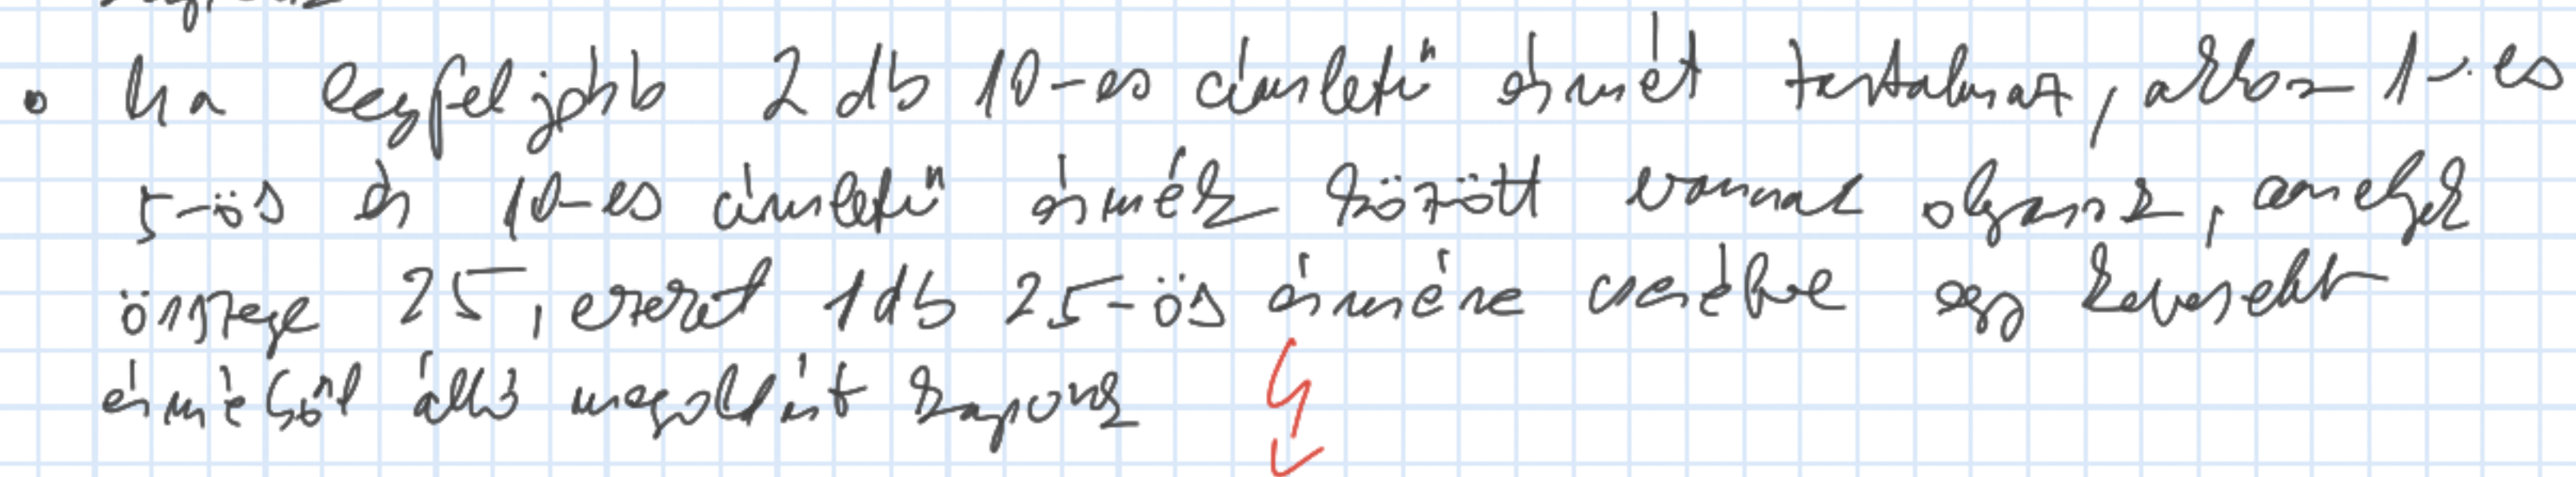 • ha legfeljebb 2 db 10-es címletű érmét tartalmaz, akkor 1-es
5-ös és 10-es címletű érmék között vannak olyanok, amelyek
összege 25, ezeket 1db 25-ös érmére cserélve egy kevesebb
érméből álló megoldást kapunk